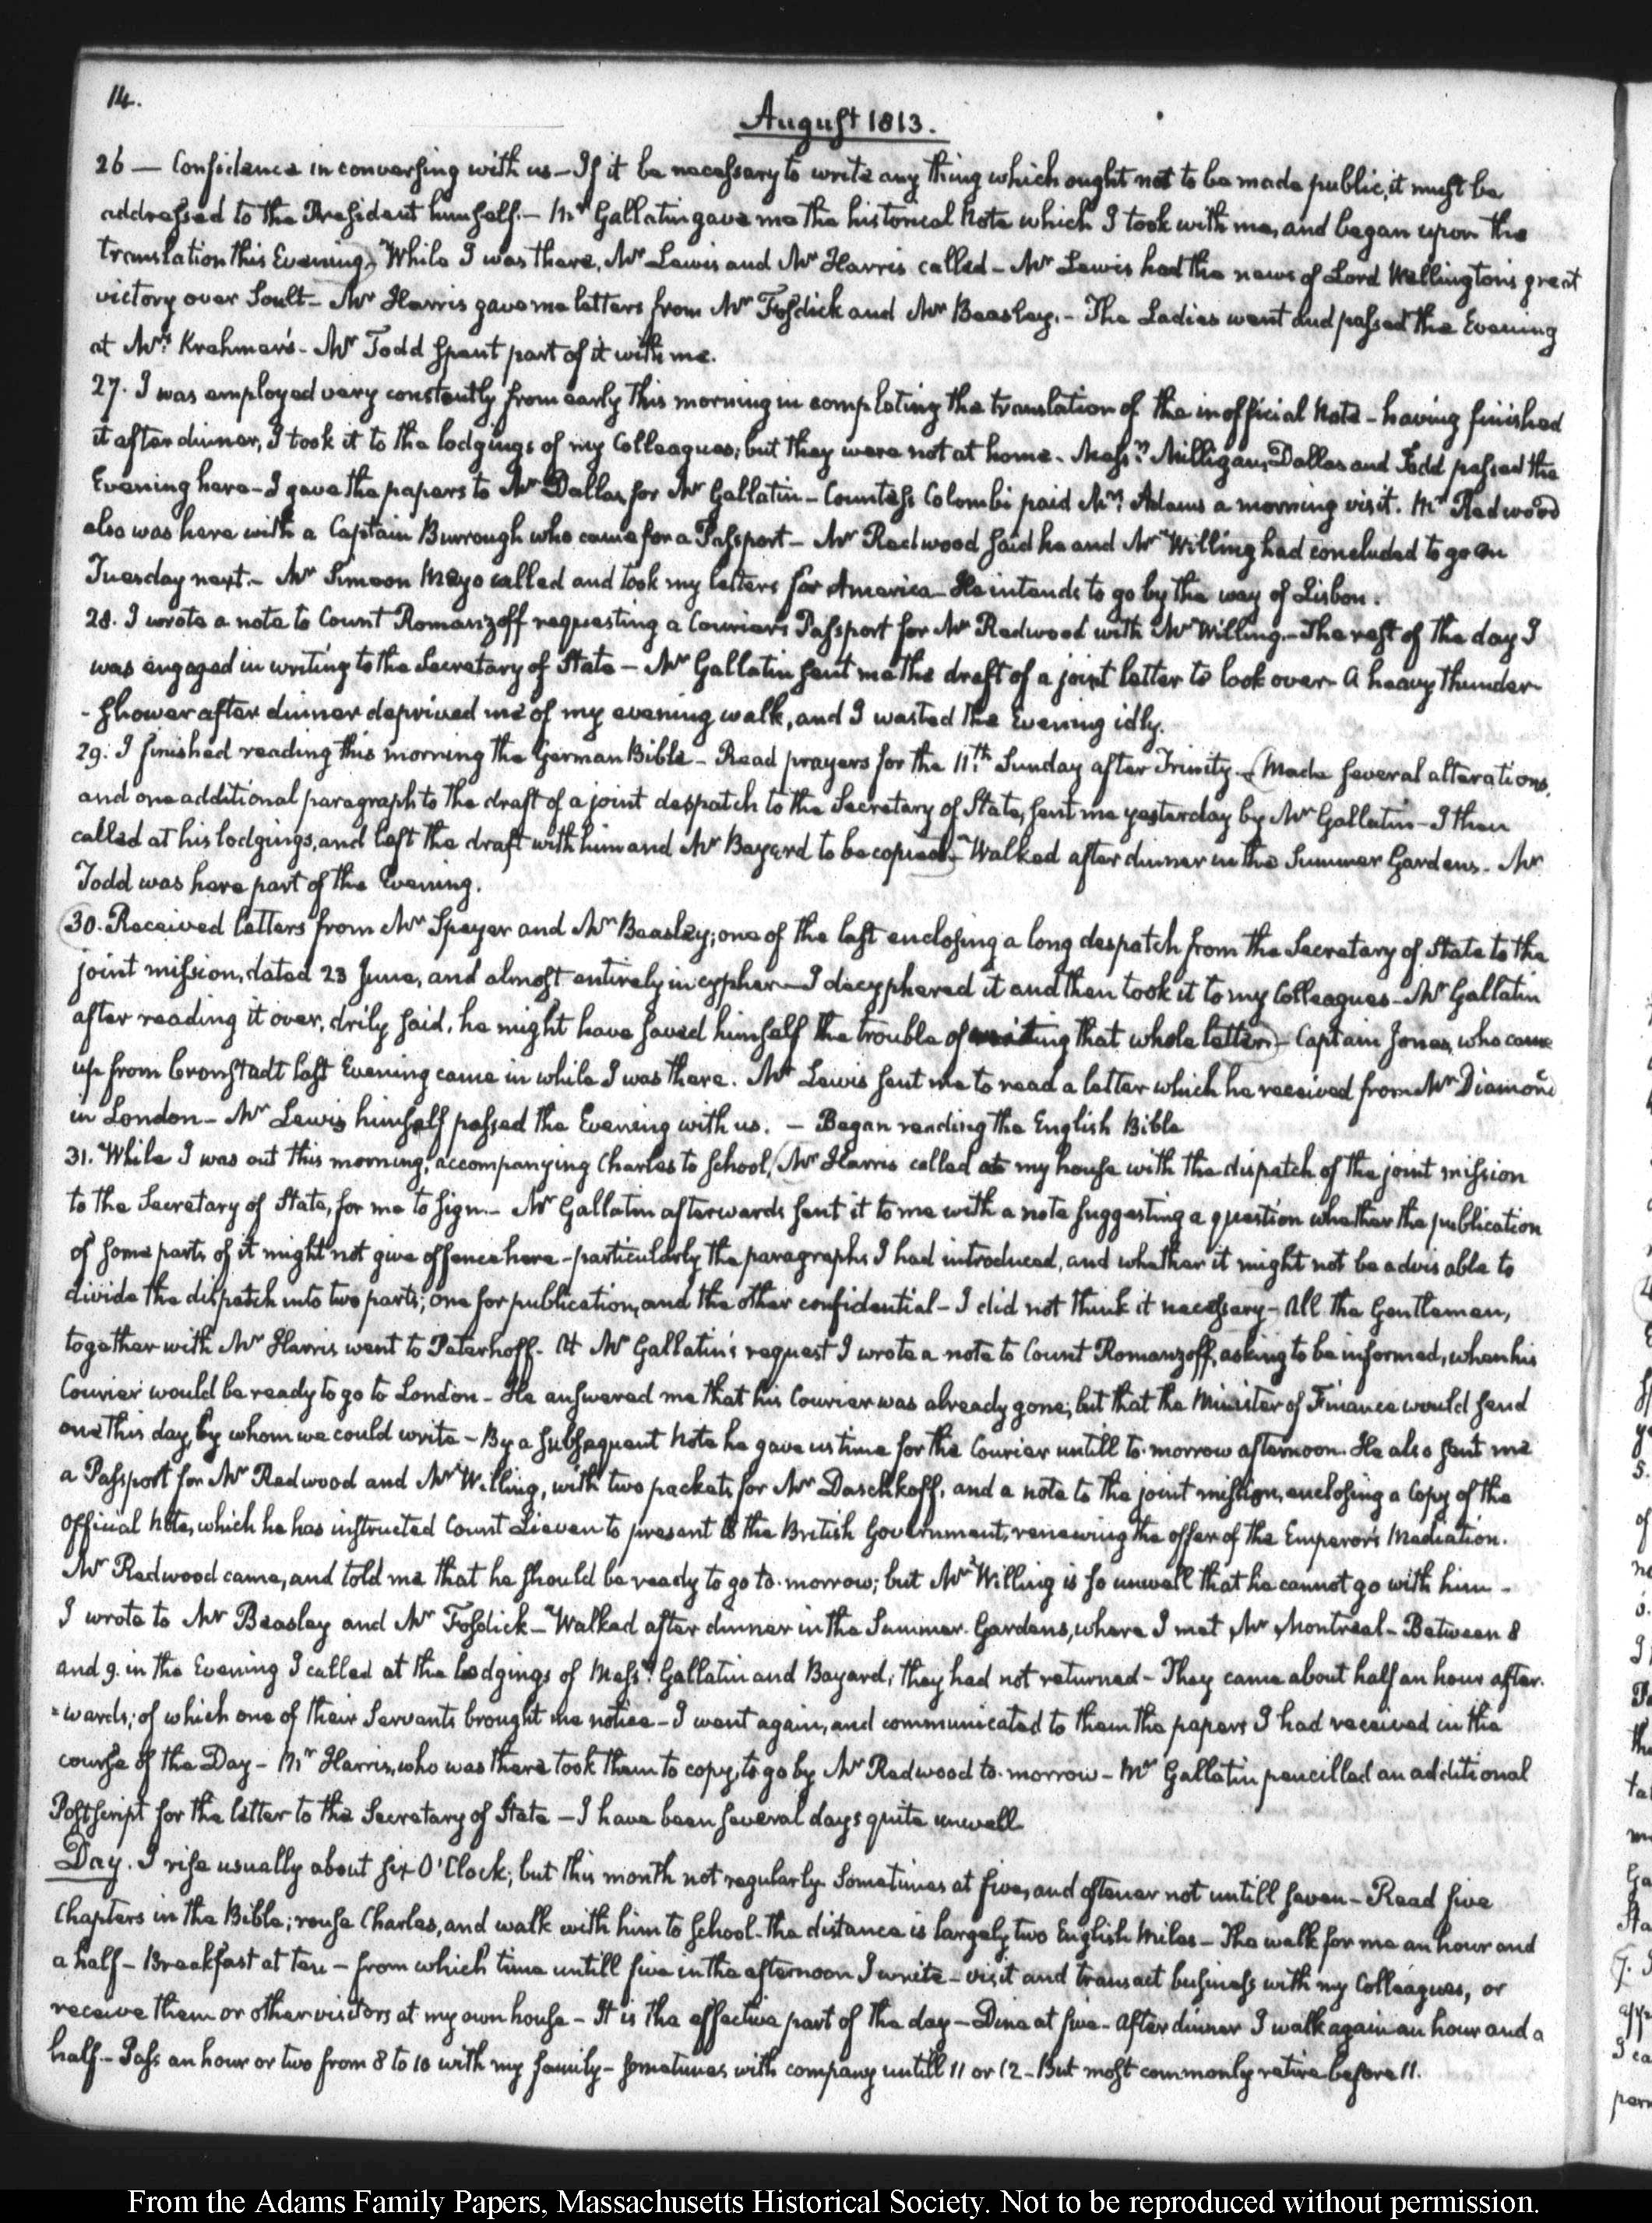 14.
August 1813.
26 — Confidence in conversing with us — If it be necessary to write any thing which ought not to be made public, it must be
addressed to the President himself. — Mr Gallatin gave me the historical Note which I took with me, and began upon the
translation this Evening. While I was there, Mr Lewis and Mr Harris called — Mr Lewis had the news of Lord Wellington's great
victory over Soult — Mr Harris gave me letters from Mr Fosdick and Mr Beasley. — The Ladies went and passed the Evening
at Mrs Krehmer's — Mr Todd spent part of it with me.
27. I was employed very constantly from early this morning in completing the translation of the inofficial Note — having finished
it after dinner, I took it to the lodgings of my Colleagues; but they were not at home. Messrs Milligan, Dallas and Todd passed the
Evening here — I gave the papers to Mr Dallas for Mr Gallatin — Countess Colombi paid Mrs Adams a morning visit. Mr Redwood
also was here with a Captain Burrough who came for a Passport — Mr Redwood said he and Mr Willing had concluded to go on
Tuesday next. — Mr Simeon Mayo called and took my letters for America — He intends to go by the way of Lisbon.
28. I wrote a note to Count Romanzoff requesting a Courier's Passport for Mr Redwood with Mr Willing. — The rest of the day I
was engaged in writing to the Secretary of State — Mr Gallatin sent me the draft of a joint letter to look over — A heavy thunder-
-shower after dinner deprived me of my evening walk, and I wasted the Evening idly.
29. I finished reading this morning the German Bible — Read prayers for the 11th Sunday after Trinity. — (Made several alterations,
and one additional paragraph to the draft of a joint despatch to the Secretary of State, sent me yesterday by Mr Gallatin — I then
called at his lodgings, and left the draft with him and Mr Bayard to be copied) — Walked after dinner in the Summer Gardens. Mr
Todd was here part of the Evening.
(30. Received letters from Mr Speyer and Mr Beasley; one of the last enclosing a long despatch from the Secretary of State to the
joint mission, dated 23 June, and almost entirely in cypher — I decyphered it and then took it to my Colleagues — Mr Gallatin
after reading it over, drily said, he might have saved himself the trouble of writing that whole letter) — Captain Jones, who came
up from Cronstadt last Evening came in while I was there. Mr Lewis sent me to read a letter which he received from Mr Diamond
in London — Mr Lewis himself passed the Evening with us. — Began reading the English Bible
31. While I was out this morning, accompanying Charles to School, (Mr Harris called at my house with the dispatch of the joint mission
to the Secretary of State, for me to sign. — Mr Gallatin afterwards sent it to me with a note suggesting a question whether the publication
of some parts of it might not give offence here — particularly the paragraphs I had introduced, and whether it might not be advisable to
divide the dispatch into two parts; one for publication, and the other confidential — I did not think it necessary — All the Gentlemen,
together with Mr Harris went to Peterhoff. At Mr Gallatin's request I wrote a note to Count Romanzoff, asking to be informed, when his
Courier would be ready to go to London — He answered me that his Courier was already gone; but that the Minister of Finance would send
one this day, by whom we could write — By a subsequent Note he gave us time for the Courier untill to-morrow afternoon. He also sent me
a Passport for Mr Redwood and Mr Willing, with two packets for Mr Daschkoff, and a note to the joint mission, enclosing a Copy of the
Official Note, which he has instructed Count Lieven to present to the British Government, renewing the offer of the Emperor's Mediation.
Mr Redwood came, and told me that he should be ready to go to-morrow; but Mr Willing is so unwell that he cannot go with him —
I wrote to Mr Beasley and Mr Fosdick — Walked after dinner in the Summer Gardens, where I met Mr Montreal — Between 8
and 9. in the Evening I called at the lodgings of Messrs Gallatin and Bayard; they had not returned — They came about half an hour after-
=wards; of which one of their Servants brought me notice — I went again, and communicated to them the papers I had received in the
course of the Day — Mr Harris, who was there took them to copy, to go by Mr Redwood to-morrow — Mr Gallatin pencilled an additional
Postscript for the letter to the Secretary of State — I have been several days quite unwell
Day. I rise usually about six O'Clock; but this month not regularly. Sometimes at five, and oftener not untill seven — Read five
Chapters in the Bible; rouse Charles, and walk with him to School — the distance is largely two English Miles — The walk for me an hour and
a half — Breakfast at ten — from which time untill five in the afternoon I write — visit and transact business with my Colleagues, or
receive them or other visitors at my own house — It is the effective part of the day — Dine at five — After dinner I walk again an hour and a
half — Pass an hour or two from 8 to 10 with my family — sometimes with company untill 11 or 12 — But most commonly retire before 11.
From the Adams Family Papers, Massachusetts Historical Society. Not to be reproduced without permission.